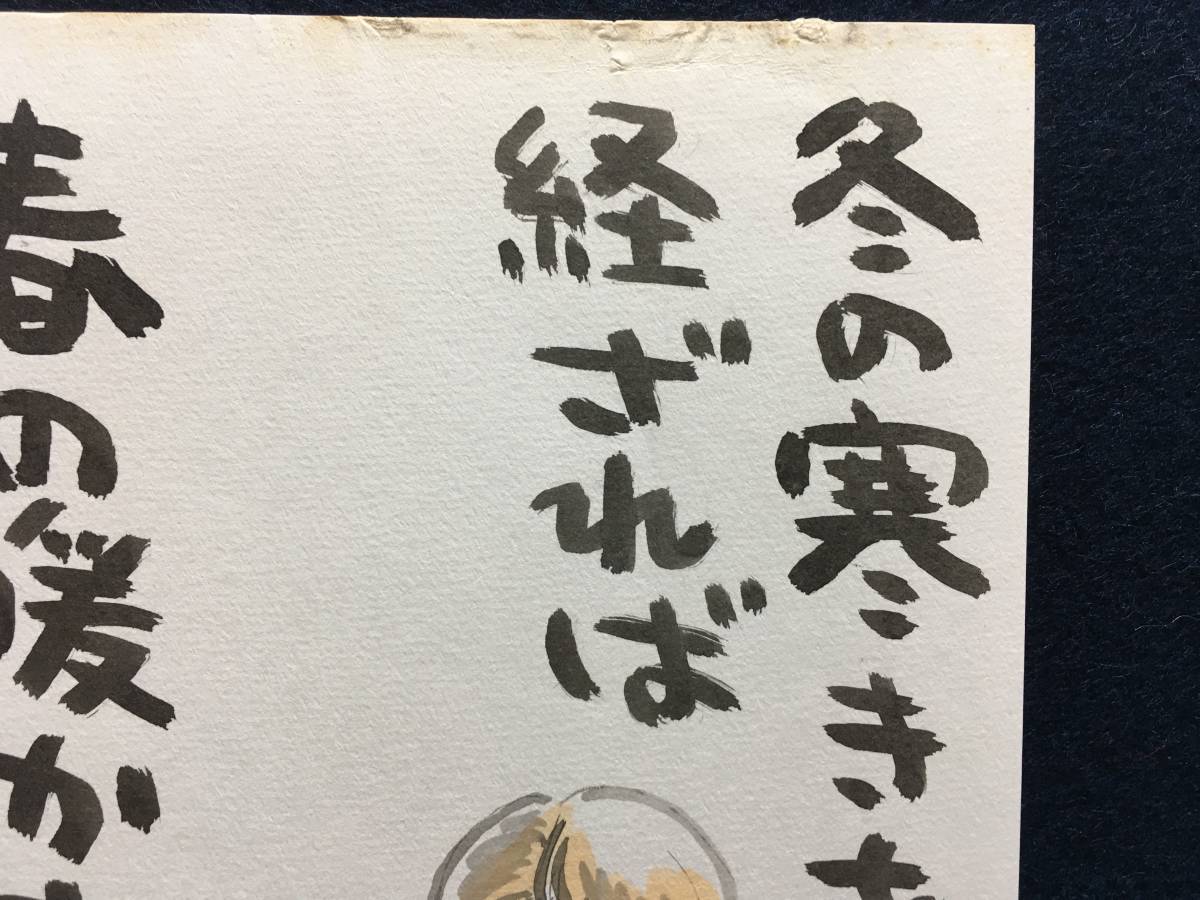 冬の寒き
経ざれば
春の暖か